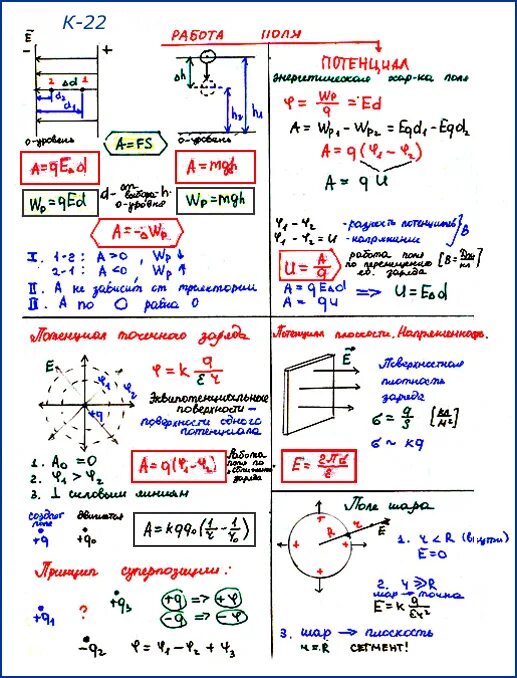 К-22
РАБОТА ПОЛЯ
E⃗
- +
Δd
2 1
d₂
d₁
0-уровень
Δh
h₂
h₁
0-уровень
A = FS
A = qEΔd
A = mgh
Wp = qEd
d - от выбора - h
0-уровня
Wp = mgh
A = -ΔWp
I. 1-2: A > 0, Wp ↓
2-1: A < 0, Wp ↑
II. A не зависит от траектории
III. A по O равна 0
ПОТЕНЦИАЛ
энергетическая хар-ка поля
φ = Wp/q = Ed
A = Wp₁ - Wp₂ = Eqd₁ - Eqd₂
A = q(φ₁ - φ₂)
A = qU
φ₁ - φ₂ - разность потенциалов
φ₁ - φ₂ = U - напряжение
} B
U = A/q
работа поля
по перемещению
ед. заряда
[B = Дж/Кл]
A = qEΔd
A = qU
=> U = EΔd
Потенциал точечного заряда
E
φ₁ φ₂
+q
φ = k q/εr
Эквипотенциальные
поверхности -
поверхности одного
потенциала
1. A₀ = 0
2. φ₁ > φ₂
3. ⊥ силовым линиям
A = q(φ₁ - φ₂)
Работа
поля по
заряда
создает
поле
движется
+q +q₀
A = kqq₀(1/r - 1/r₀)
Принцип суперпозиции:
+q₁ ? +q₃
-q₂
+q => +φ
-q => -φ
φ = φ₁ - φ₂ + φ₃
Потенциал плоскости. Напряженность.
E⃗
Поверхностная
плотность
заряда
σ = q/S [Кл/м²]
σ ~ kq
E = 2πσ/ε
Поле шара
R r E⃗
1. r < R (внутри)
E = 0
2. r ≥ R
шар → точка
E = k q/εr²
3. шар → плоскость
r = R СЕГМЕНТ!